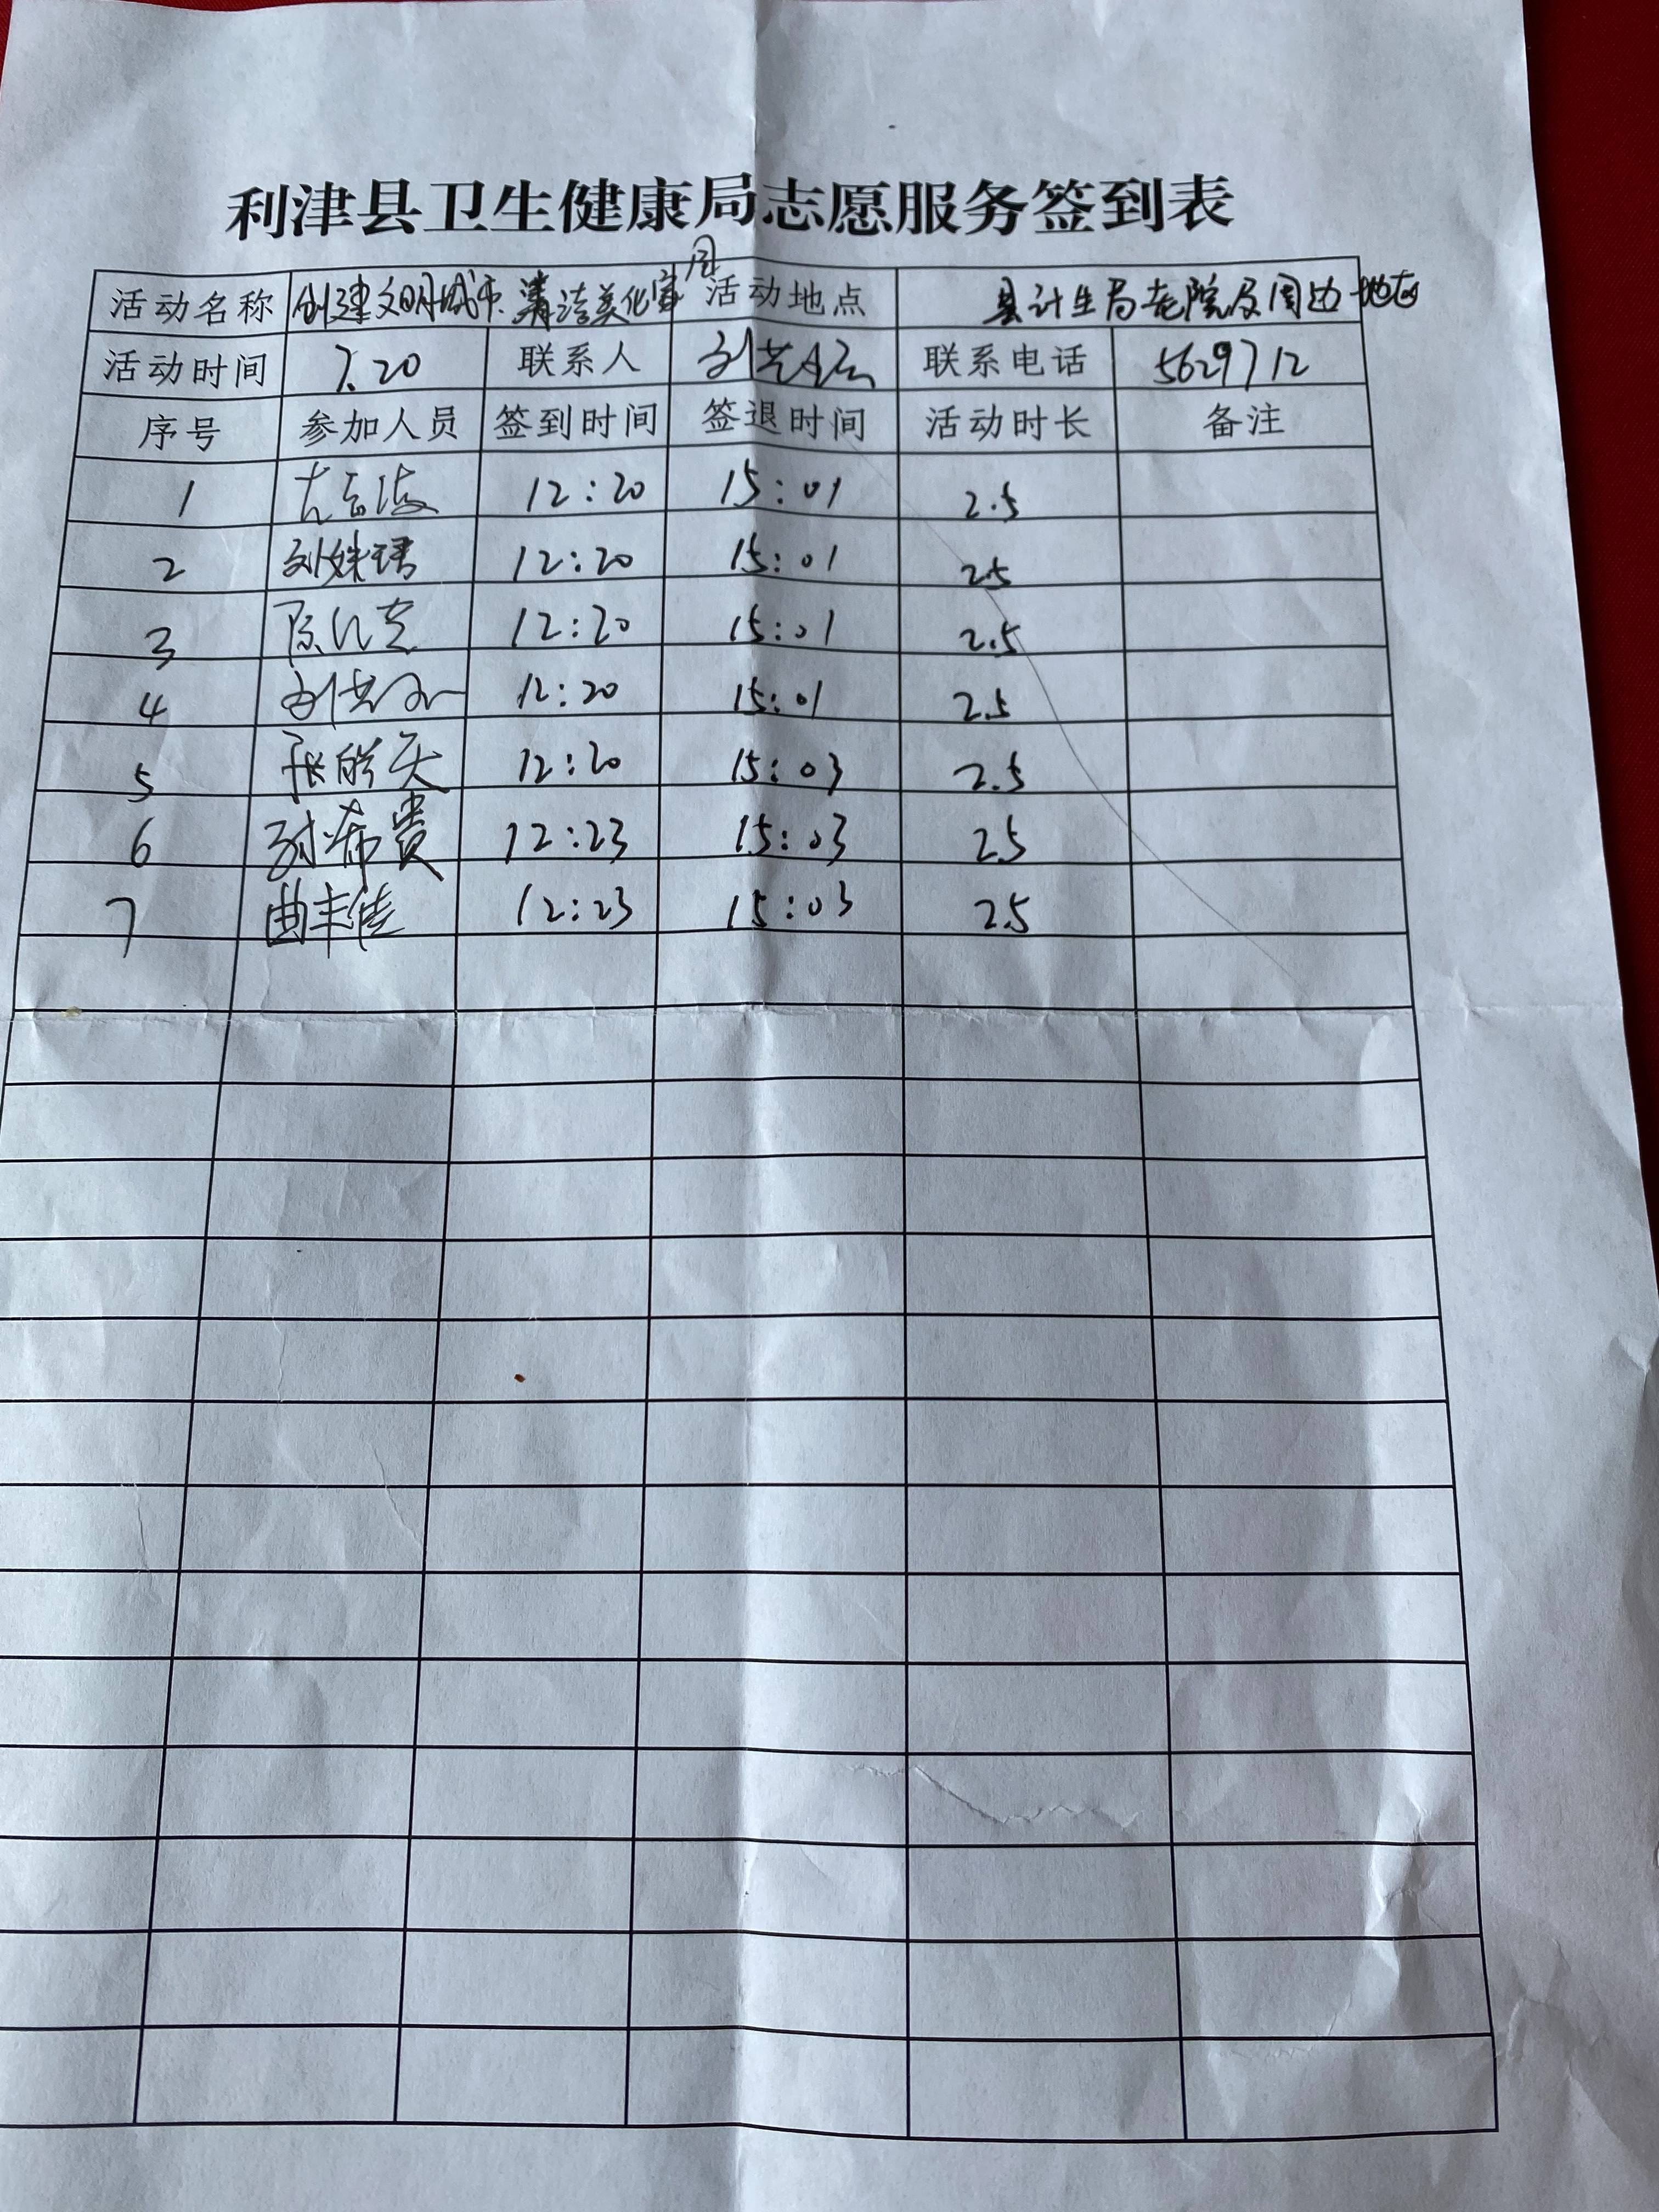 利津县卫生健康局志愿服务签到表
活动名称 创建文明城市.清洁美化家园 活动地点 县计生局老院及周边地区
活动时间 7.20 联系人 联系电话 5629712
序号 参加人员 签到时间 签退时间 活动时长 备注
1 12:20 15:01 2.5
2 刘姝琪 12:20 15:01 2.5
3 12:20 15:01 2.5
4 12:20 15:01 2.5
5 张皓天 12:20 15:03 2.5
6 12:23 15:03 2.5
7 曲丰佳 12:23 15:03 2.5